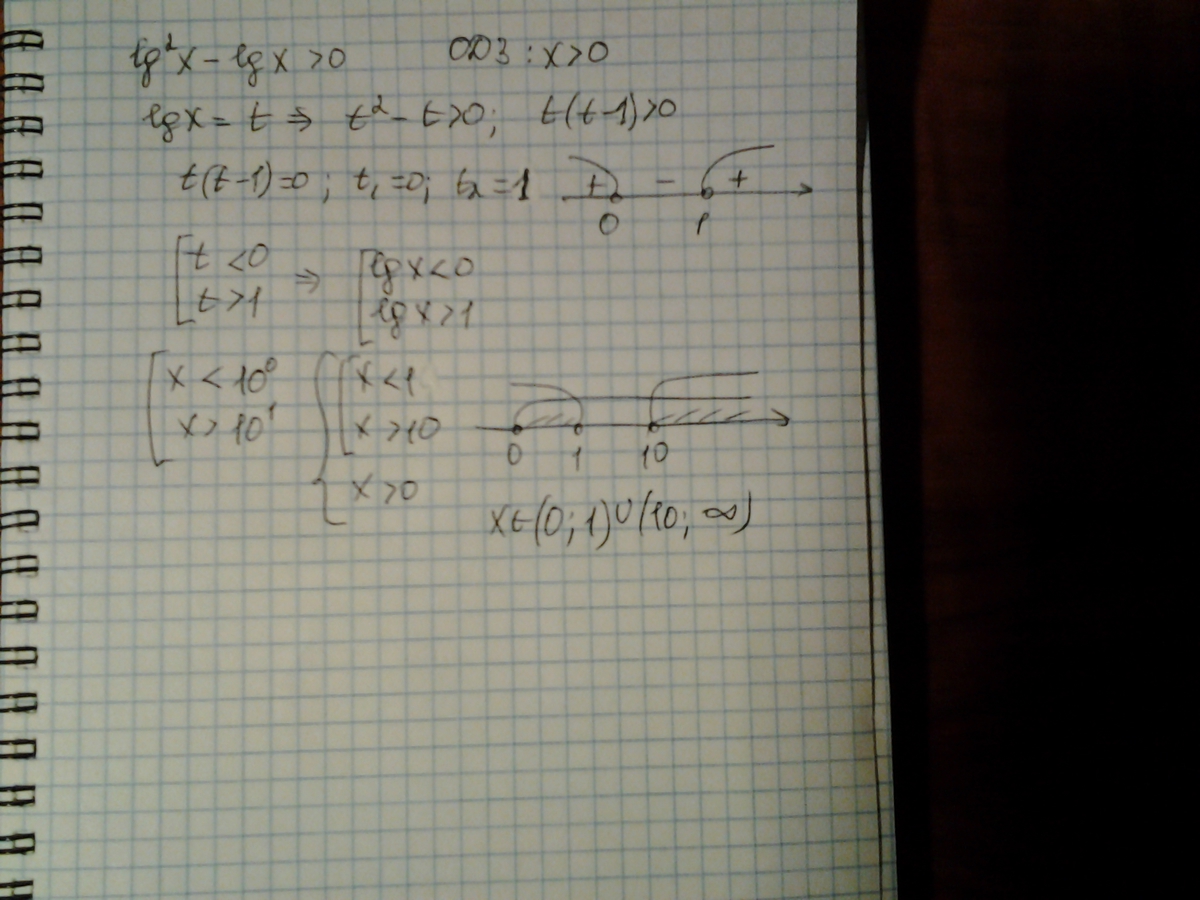 lg²x - lg x > 0   ОДЗ: x>0
lg x = t ⇒ t² - t>0; t(t-1)>0
t(t-1)=0; t₁=0; t₂=1   + - +
0 1
[t<0 ⇒ [lg x<0
[t>1 [lg x>1
[x < 10⁰ {[x<1
[x > 10¹ {[x>10   0 1 10
{x>0
x∈(0;1)∪(10;∞)